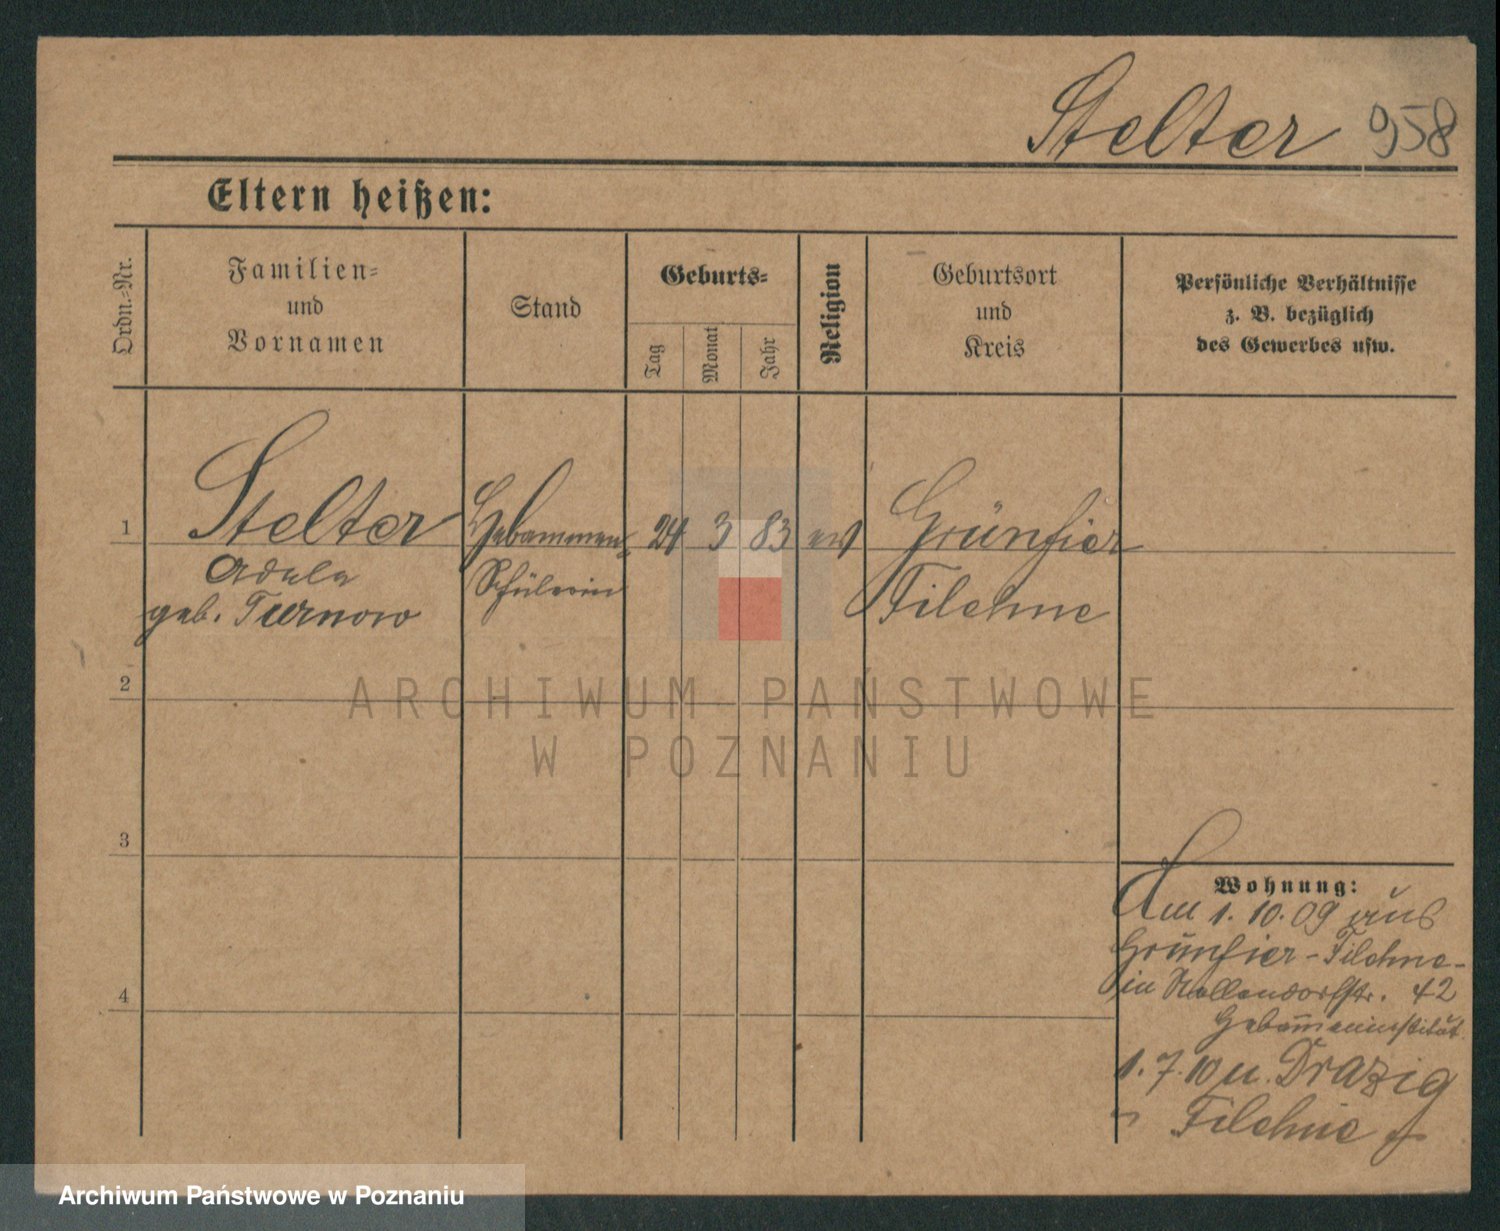 Stelter 958
Eltern heißen:
Ordn.-Nr.
Familien-
und
Vornamen
Stand
Geburts-
Tag
Monat
Jahr
Religion
Geburtsort
und
Kreis
Persönliche Verhältnisse
z. B. bezüglich
des Gewerbes usw.
1
Stelter
Adele
geb. Turnow
Hebammen-
Schülerin
24 3 83 ev
Grünfier
Filehne
2
3
4
Wohnung:
Am 1. 10. 09 aus
Grünfier - Filehne -
in Nollendorfstr. 42
Hebammeninstitut
1. 7. 10 u. Drazig
Filehne
ARCHIWUM PAŃSTWOWE
W POZNANIU
Archiwum Państwowe w Poznaniu